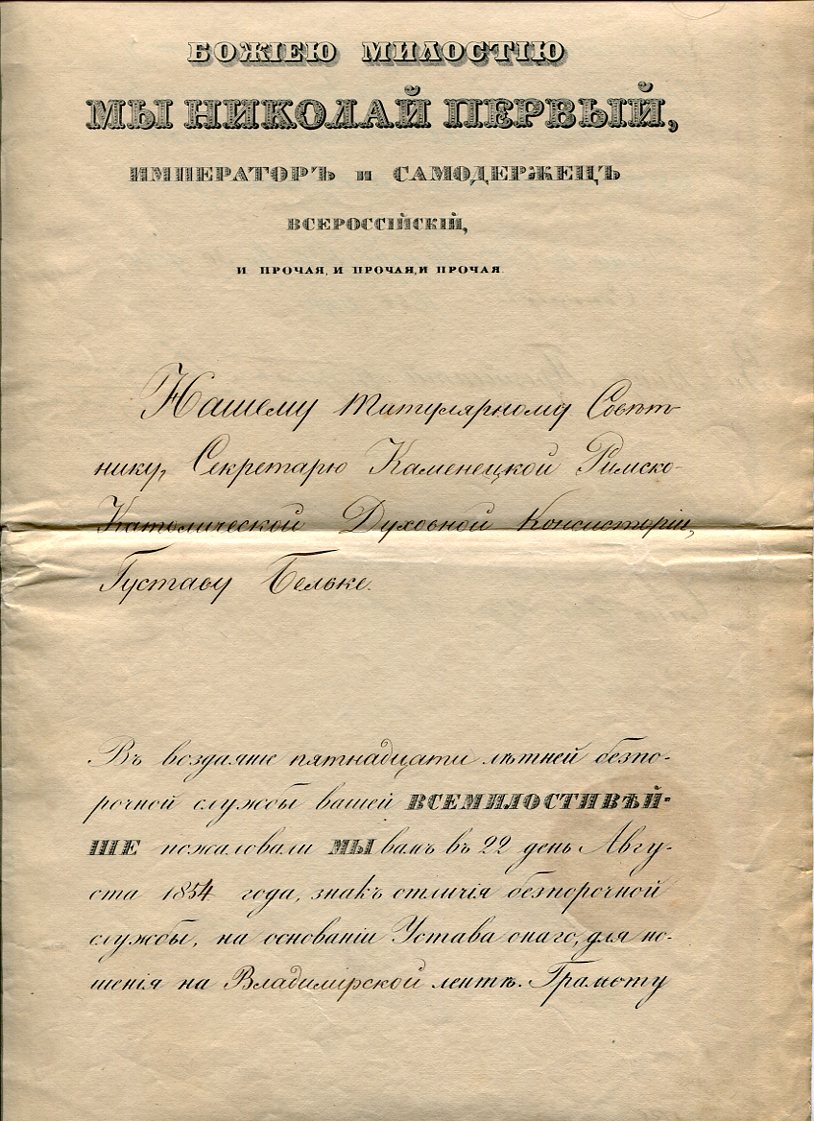 БОЖІЕЮ МИЛОСТІЮ
МЫ НИКОЛАЙ ПЕРВЫЙ,
ИМПЕРАТОРЪ и САМОДЕРЖЕЦЪ
ВСЕРОССІЙСКІЙ,
И ПРОЧАЯ, И ПРОЧАЯ, И ПРОЧАЯ.
Нашему Титулярному Совѣт-
нику, Секретарю Каменецкой Римско-
Католической Духовной Консисторіи,
Густаву Бельке.
Въ воздаяніе пятнадцати лѣтней безпо-
рочной службы вашей ВСЕМИЛОСТИВѢЙ-
ШЕ пожаловали МЫ вамъ въ 22 день Авгу-
ста 1854 года, знакъ отличія безпорочной
службы, на основаніи Устава онаго, для но-
шенія на Владимірской лентѣ. Грамоту